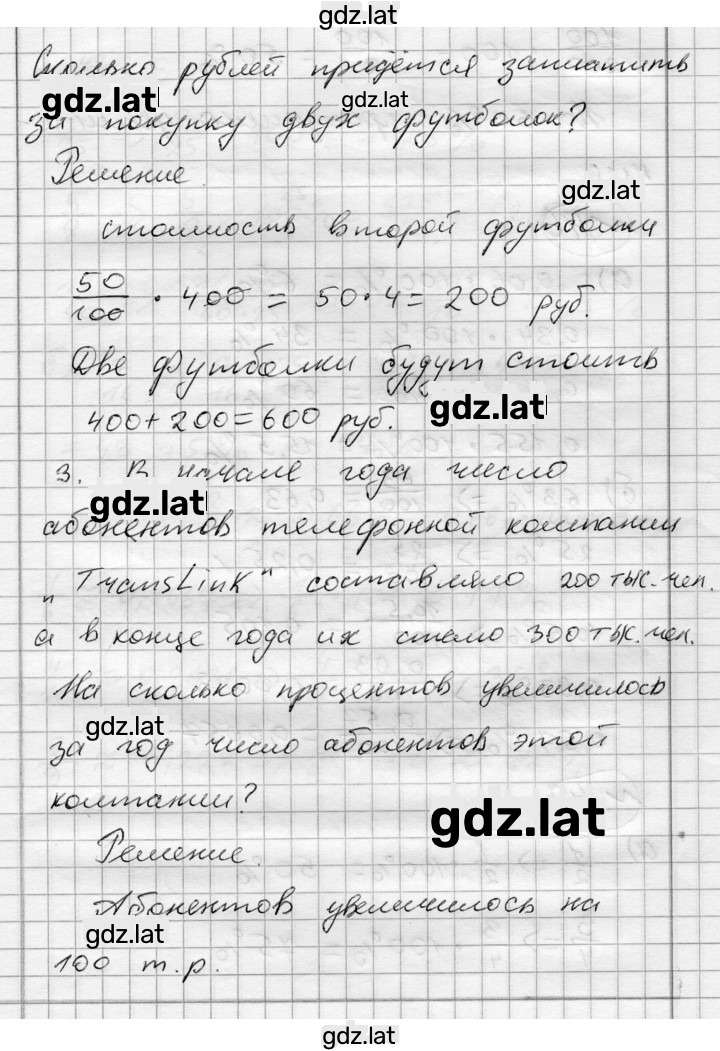 gdz.lat
Сколько рублей придётся заплатить
gdz.lat gdz.lat
за покупку двух футболок?
Решение.
gdz.lat
стоимость второй футболки
50/100 · 400 = 50·4 = 200 руб.
Две футболки будут стоить
gdz.lat
400+200=600 руб.
3. В начале года число
gdz.lat
абонентов телефонной компании
"TransLink" составляло 200 тыс. чел.
а в конце года их стало 300 тыс. чел.
На сколько процентов увеличилось
gdz.lat
за год число абонентов этой
компании?
gdz.lat
Решение.
Абонентов увеличилось на
gdz.lat
100 т.р.
gdz.lat